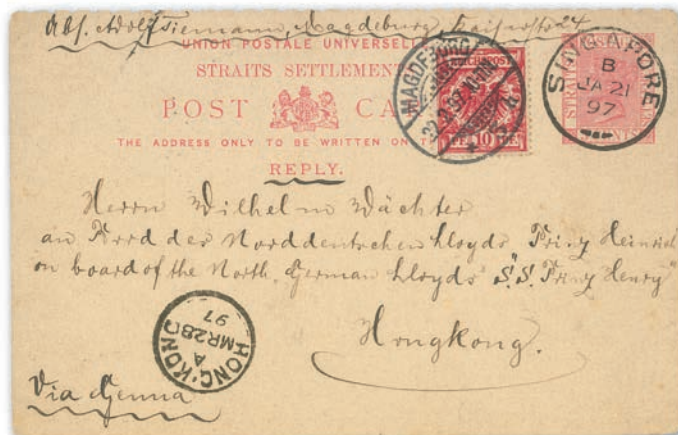 Abs. Adolf Tiemann, Magdeburg,
UNION POSTALE UNIVERSELLE
STRAITS SETTLEMEN
POST CA
THE ADDRESS ONLY TO BE WRITTEN ON TH
REPLY.
MAGDEBURG
REICHSPOST
10
SINGAPORE
B
JA 21
97
STRAITS
CENTS
Herrn Wilhelm Wächter
an Bord des Norddeutschen Lloyds Prinz Heinrich
on board of the North German Lloyds "S.S. Prinz Henry"
Hongkong.
HONG-KONG
A
MR 28
97
Via Genua